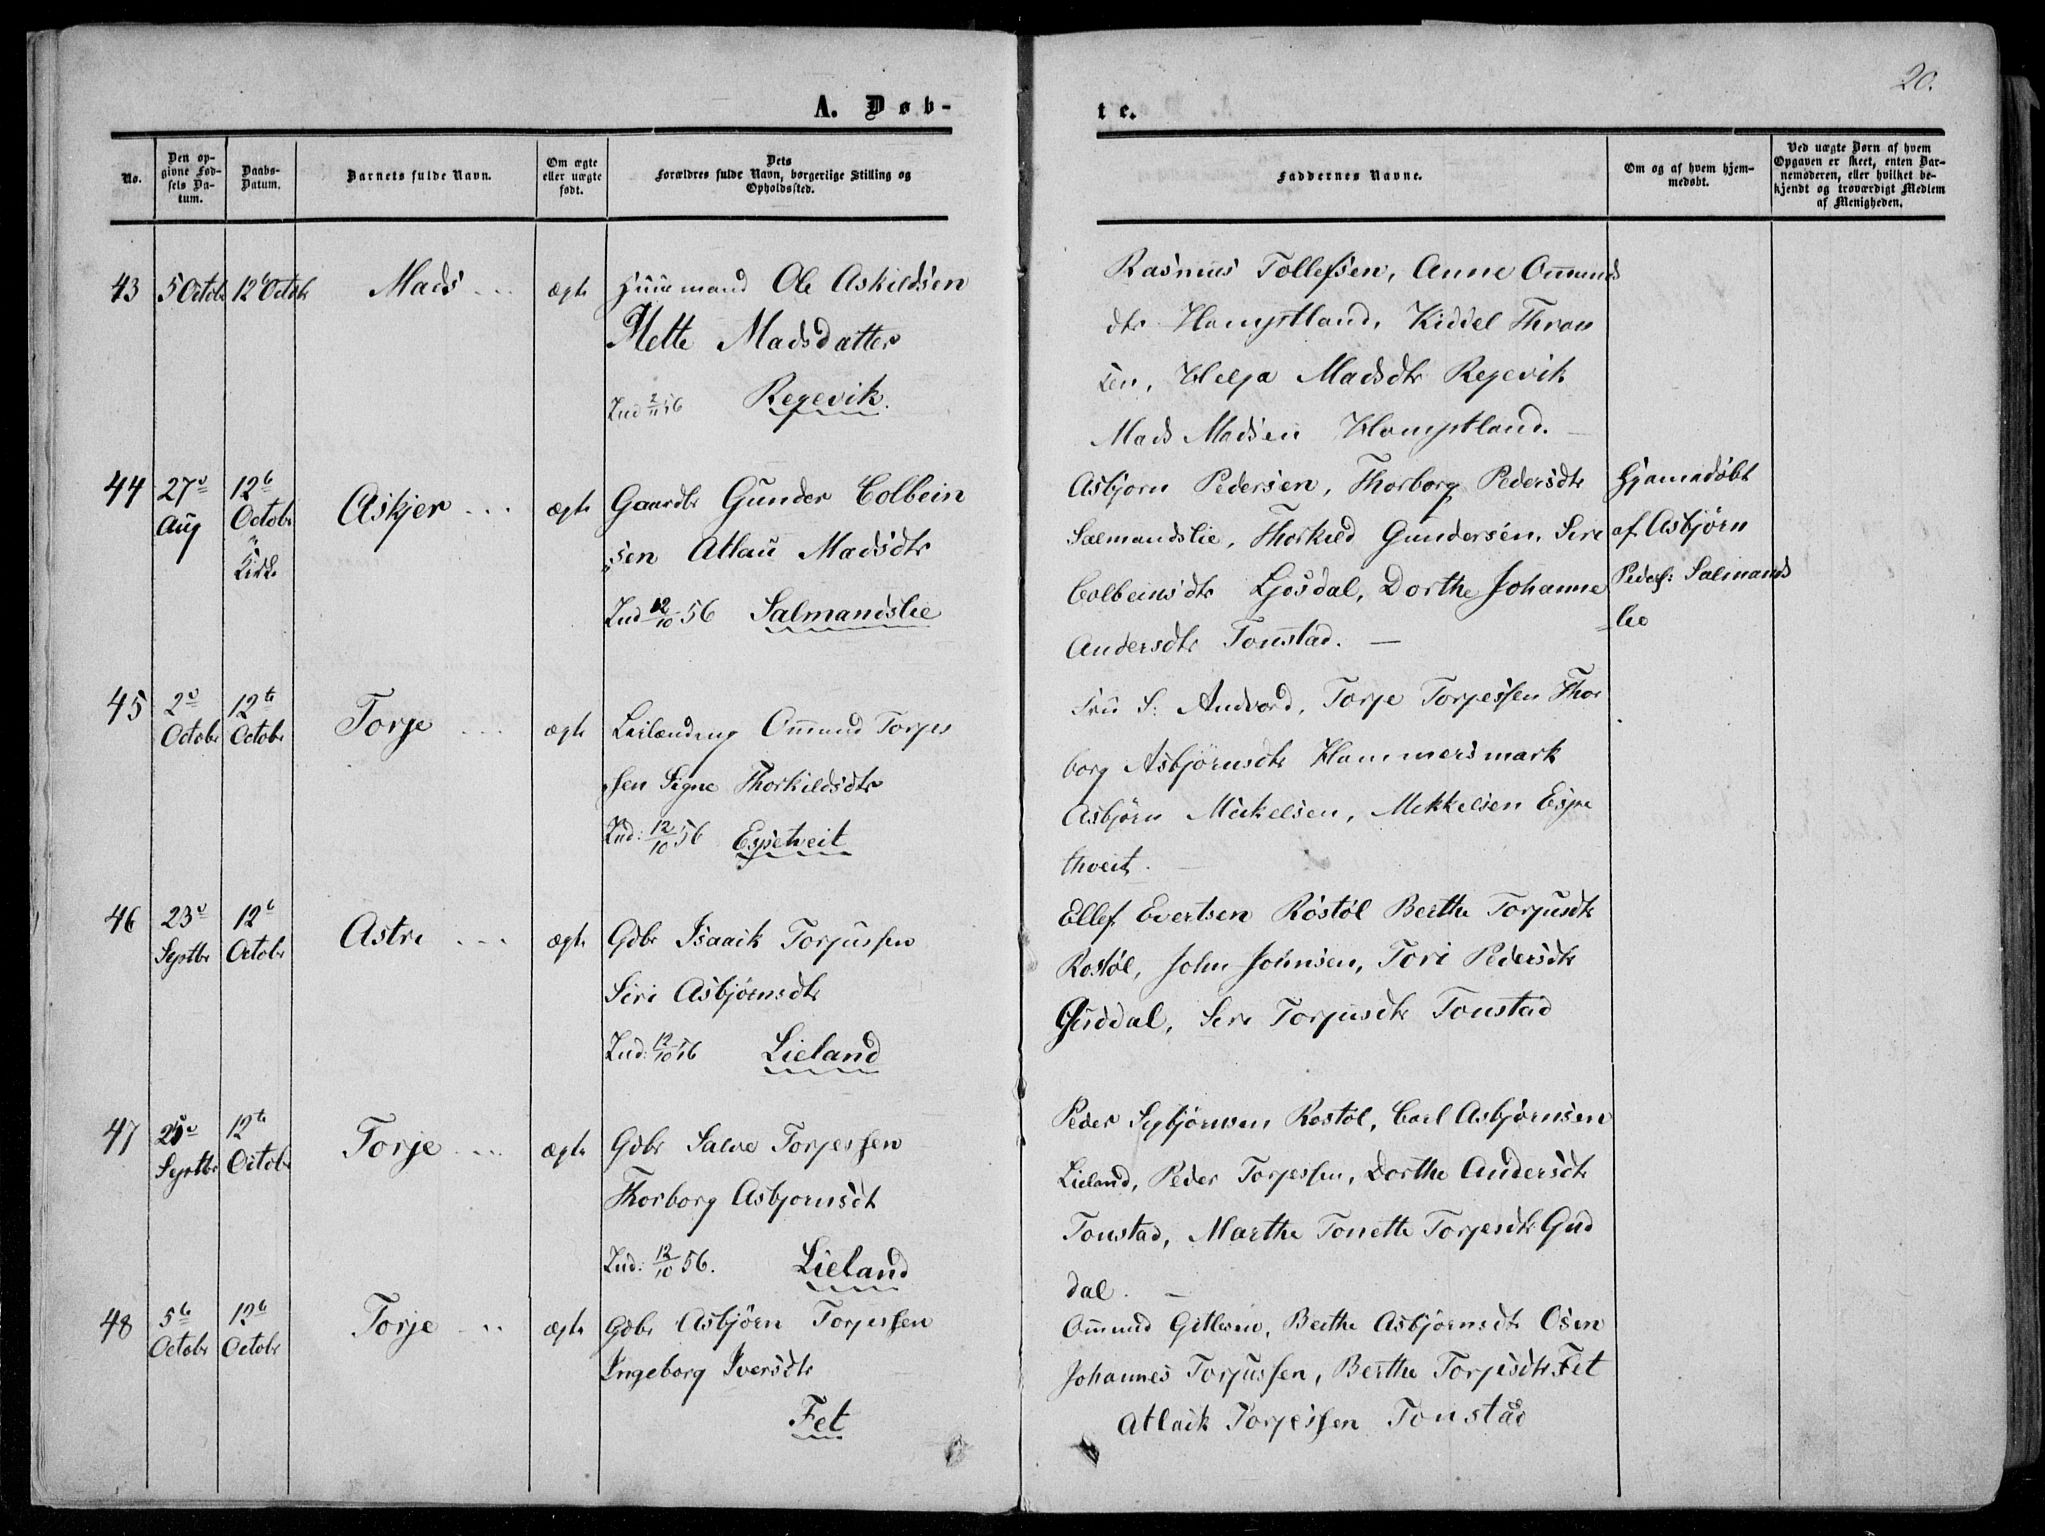 20.
A. Døb-
te.
No.
Den op-
givne Fød-
sels Da-
tum.
Daabs-
Datum.
Barnets fulde Navn.
Om ægte
eller uægte
født.
Dets
Forældres fulde Navn, borgerlige Stilling og
Opholdssted.
Faddernes Navne.
Om og af hvem hjem-
medøbt.
Ved uægte Børn af hvem
Opgaven er skeet, enten Bar-
nemoderen, eller hvilket be-
kjendt og troværdigt Medlem
af Menigheden.
43 5 Octobr 12te Octobr Mads ægte Huusmand Ole Askildsen
Mette Madsdatter
Ind 2/11 56 Regevik.
Rasmus Tollefsen, Anne Ommunds
dtr Hompland, Kiddel Thron
sen, Helga Madsdtr Regevik
Mads Madsen Hompland.
44 27de Aug 12te Octobr Kirke Askjer ægte Gaardbr Gunder Colbein
sen Atlau Madsdtr
Ind 12/10 56 Salmandslie
Asbjørn Pedersen, Thorborg Pedersdtr
Salmandslie, Thorkild Gundersen, Sire
Colbeinsdtr Ljosdal, Dorthe Johanne
Andersdtr Tonstad.
Hjemmedøbt
af Asbjørn
Peders: Salmands
lie
45 2de Octobr 12te Octobr Torje ægte Leilænding Ommund Torjes
sen Signe Thorkildsdtr
Ind: 12/10 56 Espetveit
Fru S. Andvord, Torje Torjessen Thor
borg Asbjørnsdtr Hammersmark
Asbjørn Mikelsen, Mekkelsen Espe
thveit.
46 23de Septbr 12te Octobr Astri ægte Gdbr Isaaik Torjussen
Siri Asbjørnsdtr
Ind: 12/10 56 Lieland
Ellef Evertsen Røstøl Berthe Torjusdtr
Rostøl, John Johnsen, Tori Pedersdtr
Guddal, Sire Torjusdtr Tonstad
47 Septbr 12te Octobr Torje ægte Gdbr Salve Torjessen
Thorborg Asbjornsdt
Ind: 12/10 56. Lieland
Peder Sigbjørnsen Rostøl, Carl Asbjørnsen
Lieland, Peder Torjessen, Dorthe Andersdtr
Tonstad, Marthe Tonette Torjesdtr Gud
dal.
48 5te Octobr 12te Octobr Torje ægte Gdbr Asbjørn Torjessen
Ingeborg Iversdtr
Fet
Ommund Gitlesen, Berthe Asbjørnsdtr Osen
Johannes Torjussen, Berthe Torjesdtr Fet
Atlaik Torjessen Tonstad